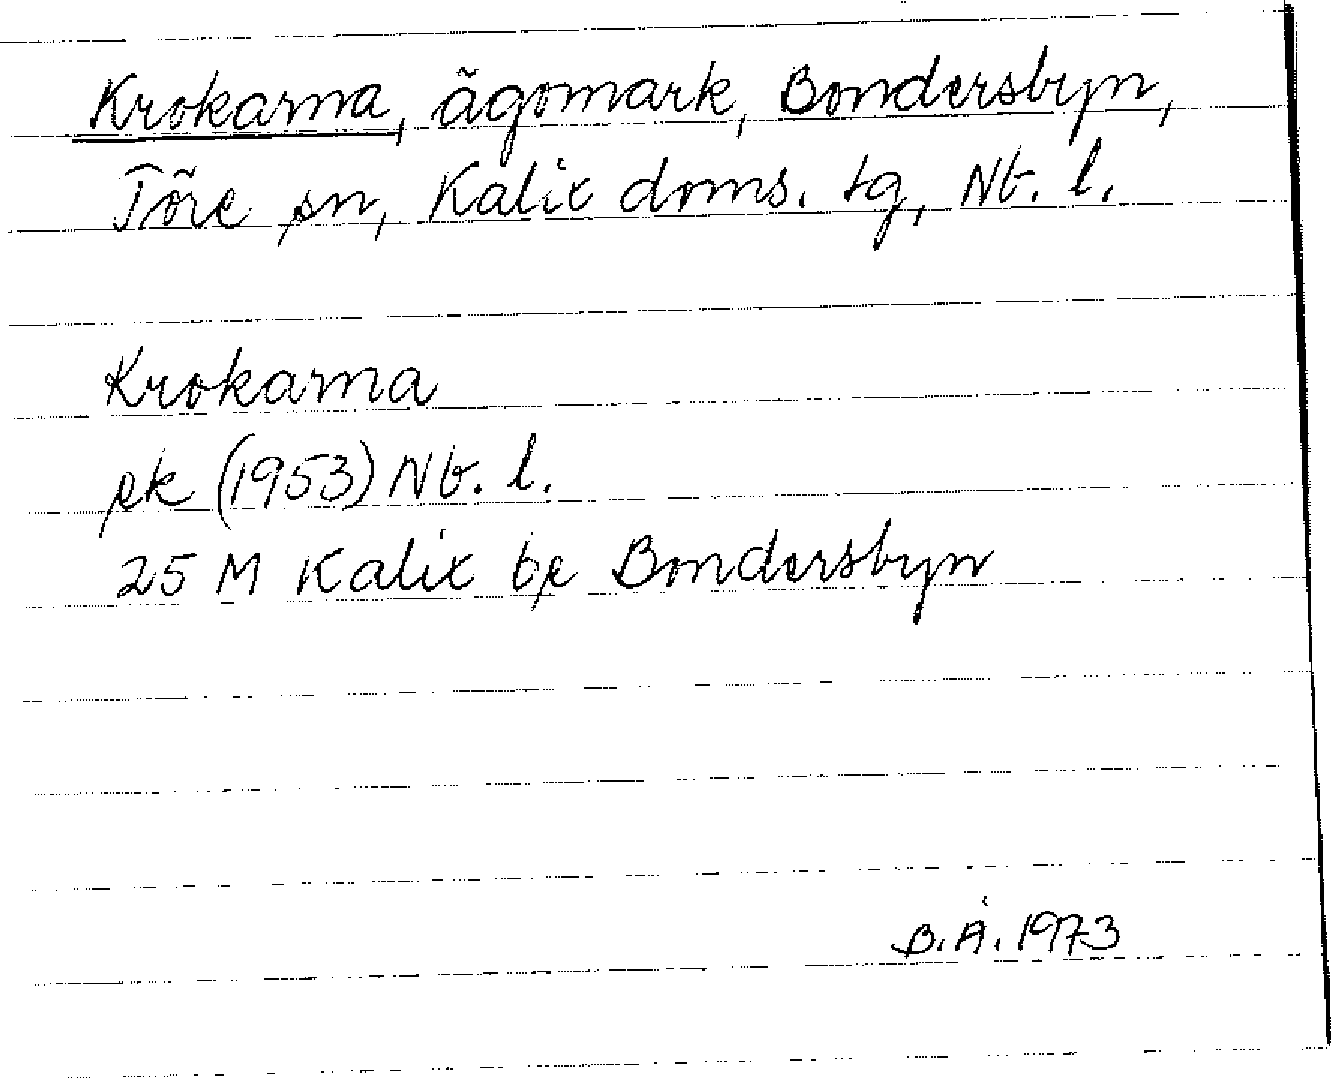 Krokarna, ägomark, Bondersbyn,
Töre sn, Kalix doms. tg, Nb. l.
Krokarna
ek (1953) Nb. l.
25 M Kalix be Bondersbyn
B.Å. 1973